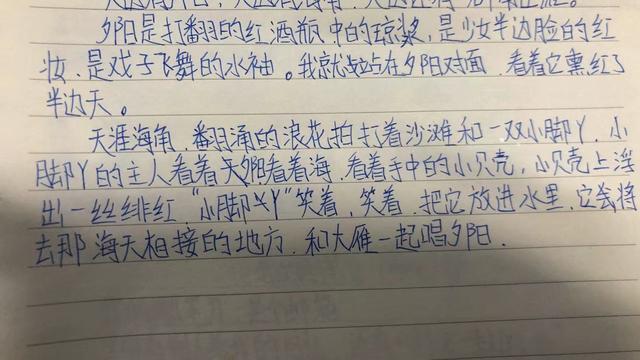 夕阳是打翻的红酒瓶中的琼浆，是少女半边脸的红
妆，是戏子飞舞的水袖。我就站在夕阳对面，看着它熏红了
半边天。
天涯海角，翻涌的浪花拍打着沙滩和一双小脚丫，小
脚丫的主人看着夕阳看着海，看着手中的小贝壳，小贝壳上浮
出一丝绯红，“小脚丫”笑着，笑着，把它放进水里，它会将
去那海天相接的地方，和大雁一起唱夕阳．